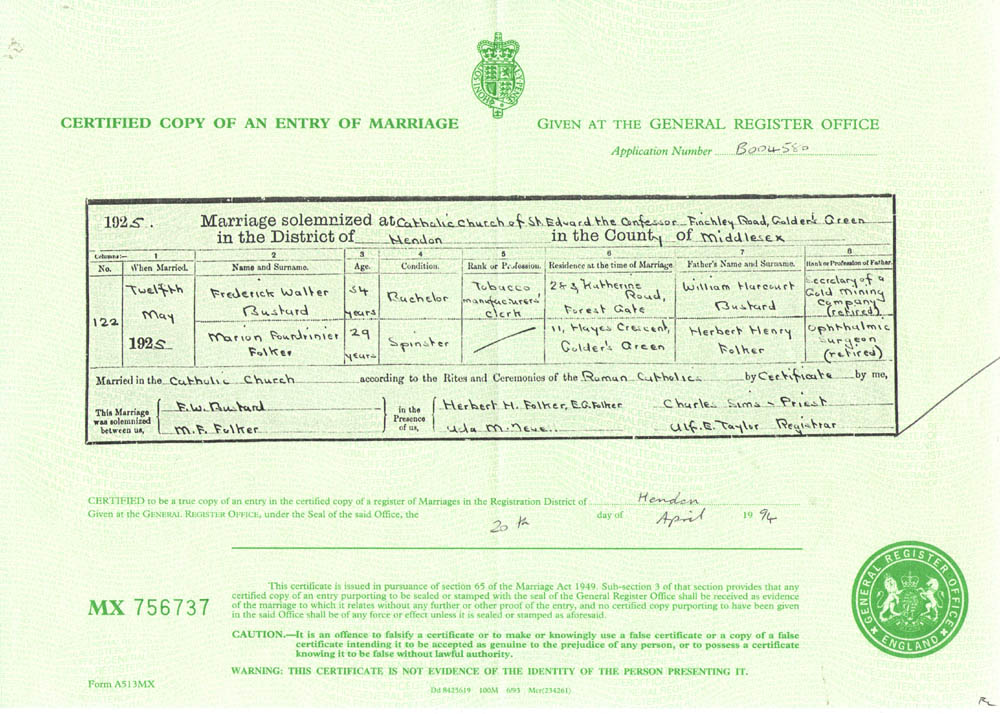 CERTIFIED COPY OF AN ENTRY OF MARRIAGE
GIVEN AT THE GENERAL REGISTER OFFICE
Application Number B004580
1925. Marriage solemnized at Catholic Church of St. Edward the Confessor Finchley Road, Golder's Green
in the District of Hendon in the County of Middlesex
Columns:— 1 2 3 4 5 6 7 8
No. When Married. Name and Surname. Age. Condition. Rank or Profession. Residence at the time of Marriage Father's Name and Surname. Rank or Profession of Father.
122
Twelfth
May
1925
Frederick Walter
Bustard
34
years
Bachelor
Tobacco
manufacturers'
clerk
Katherine
Road,
Forest Gate
William Harcourt
Bustard
Secretary of a
Gold Mining
Company
(retired)
Marion Fourdrinier
Folker
29
years
Spinster
11, Hayes Crescent,
Golder's Green
Herbert Henry
Folker
Ophthalmic
Surgeon
(retired)
Married in the Catholic Church according to the Rites and Ceremonies of the Roman Catholics by Certificate by me,
This Marriage
was solemnized
between us,
F.W. Bustard
M.F. Folker
in the
Presence
of us,
Herbert H. Folker, E.G. Folker
M.
Charles Sims - Priest
Alf. E. Taylor Registrar
CERTIFIED to be a true copy of an entry in the certified copy of a register of Marriages in the Registration District of Hendon
Given at the GENERAL REGISTER OFFICE, under the Seal of the said Office, the 20th day of April 1994
MX 756737
This certificate is issued in pursuance of section 65 of the Marriage Act 1949. Sub-section 3 of that section provides that any
certified copy of an entry purporting to be sealed or stamped with the seal of the General Register Office shall be received as evidence
of the marriage to which it relates without any further or other proof of the entry, and no certified copy purporting to have been given
in the said Office shall be of any force or effect unless it is sealed or stamped as aforesaid.
CAUTION.—It is an offence to falsify a certificate or to make or knowingly use a false certificate or a copy of a false
certificate intending it to be accepted as genuine to the prejudice of any person, or to possess a certificate
knowing it to be false without lawful authority.
WARNING: THIS CERTIFICATE IS NOT EVIDENCE OF THE IDENTITY OF THE PERSON PRESENTING IT.
GENERAL REGISTER OFFICE
ENGLAND
Form A513MX
Dd 8425619 100M 6/93 Mcr(234261)